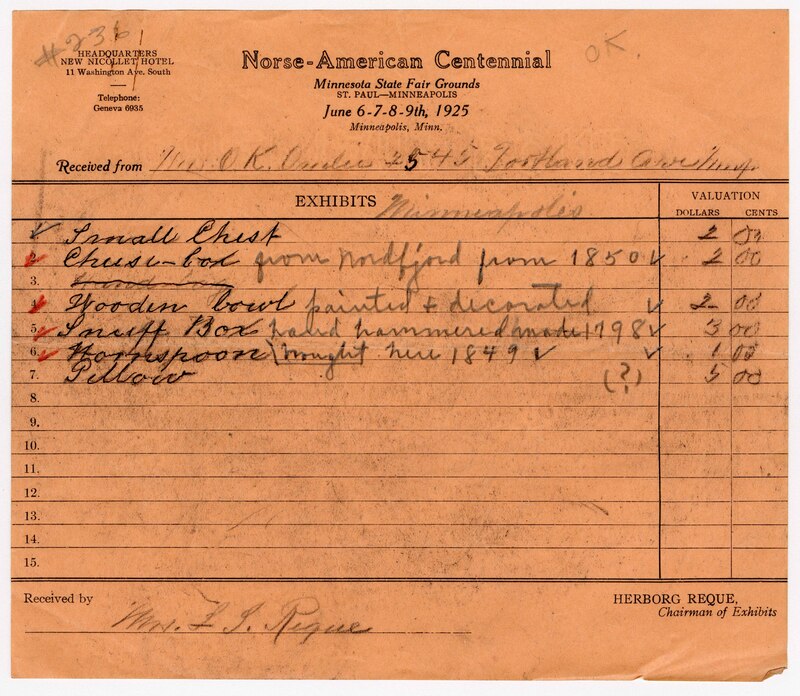 #236
HEADQUARTERS
NEW NICOLLET HOTEL
11 Washington Ave. South
Telephone:
Geneva 6935
Norse-American Centennial
OK.
Minnesota State Fair Grounds
ST. PAUL—MINNEAPOLIS
June 6-7-8-9th, 1925
Minneapolis, Minn.
Received from Mrs. O. K. 2545 Portland Ave
EXHIBITS Minneapolis VALUATION
DOLLARS CENTS
✓ Small Chest 2 00
✓ Cheese-box from Nordfjord from 1850 ✓ 2 00
3.
4. Wooden bowl painted & decorated ✓ 2 00
5. Snuff Box hand hammered made 1798 ✓ 3 00
6. Hornspoon [Brought] here 1849 ✓ ✓ 1 00
7. Pillow (?) 5 00
8.
9.
10.
11.
12.
13.
14.
15.
Received by Mrs. L. J. Reque
HERBORG REQUE,
Chairman of Exhibits